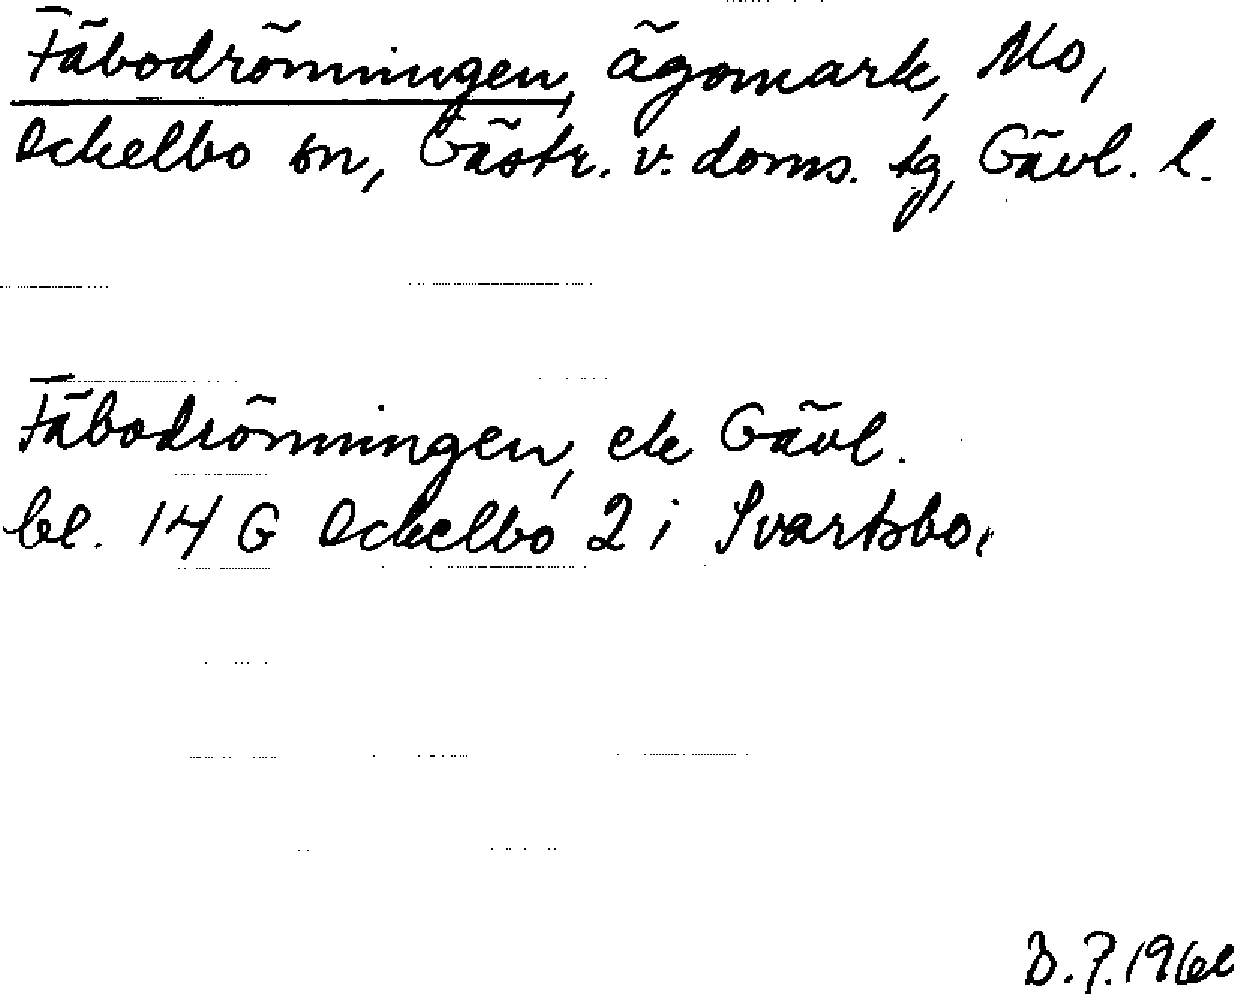 Fäbodrönningen, ägomark, Mo,
Ockelbo sn, Gästr. v. doms. tg, Gävl. l.
Fäbodrönningen, ek Gävl.
bl. 14 G Ockelbo 2 i Svartsbo,